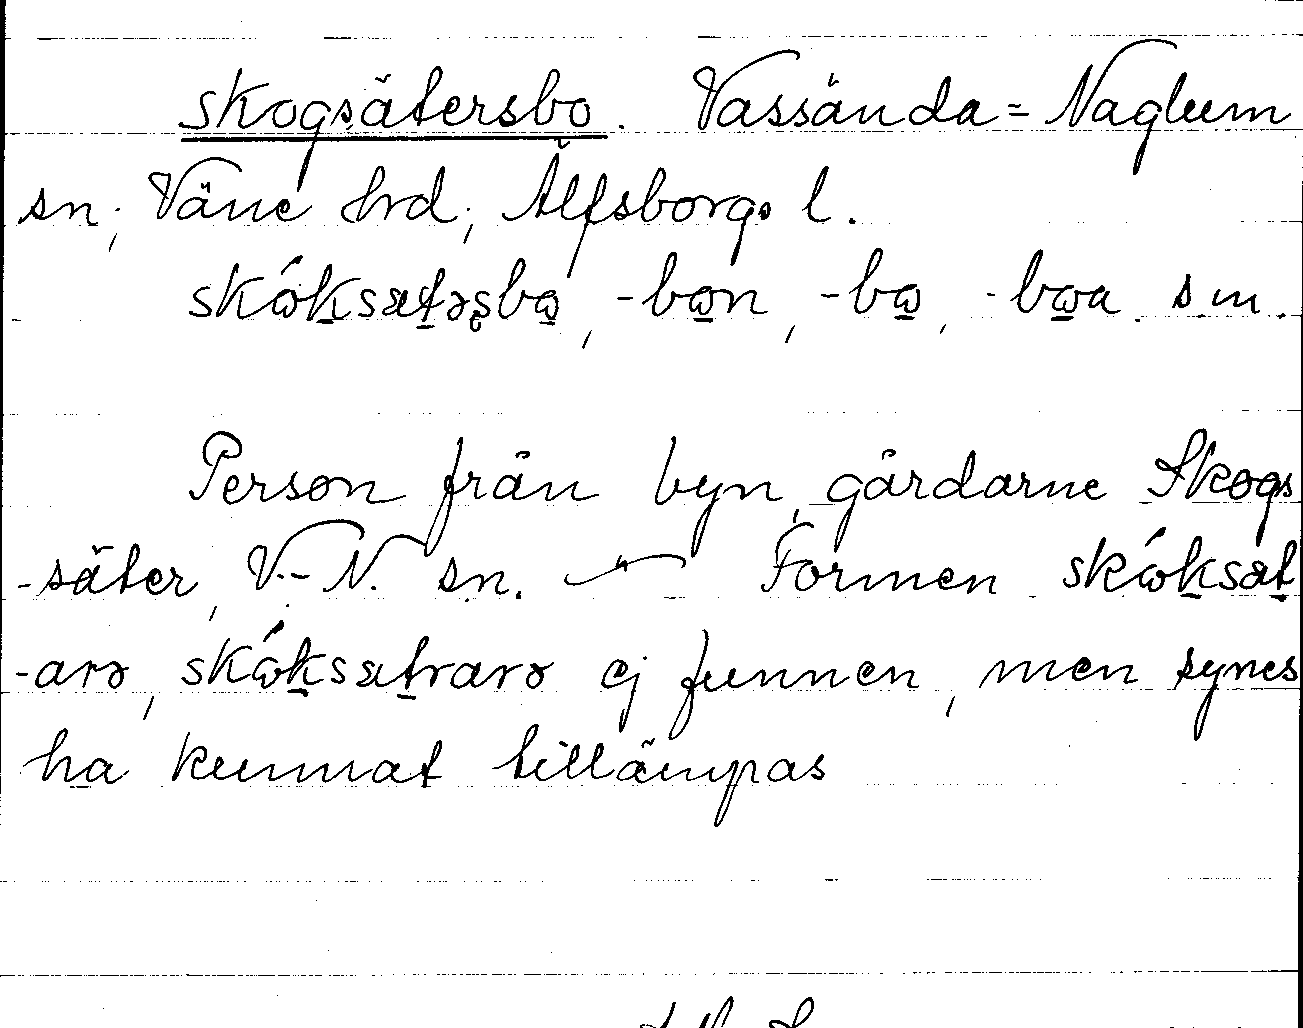 skogsätersbo. Vassända=Naglum
sn, Väne hrd, Älfsborgs l.
skǿksætərsbo, -bon, -bo, -boa s m.
Person från byn, gårdarne Skogs
-säter, V.-N. sn. — Formen skóksæt
-arə, skóksætrarə ej funnen, men synes
ha kunnat tillämpas